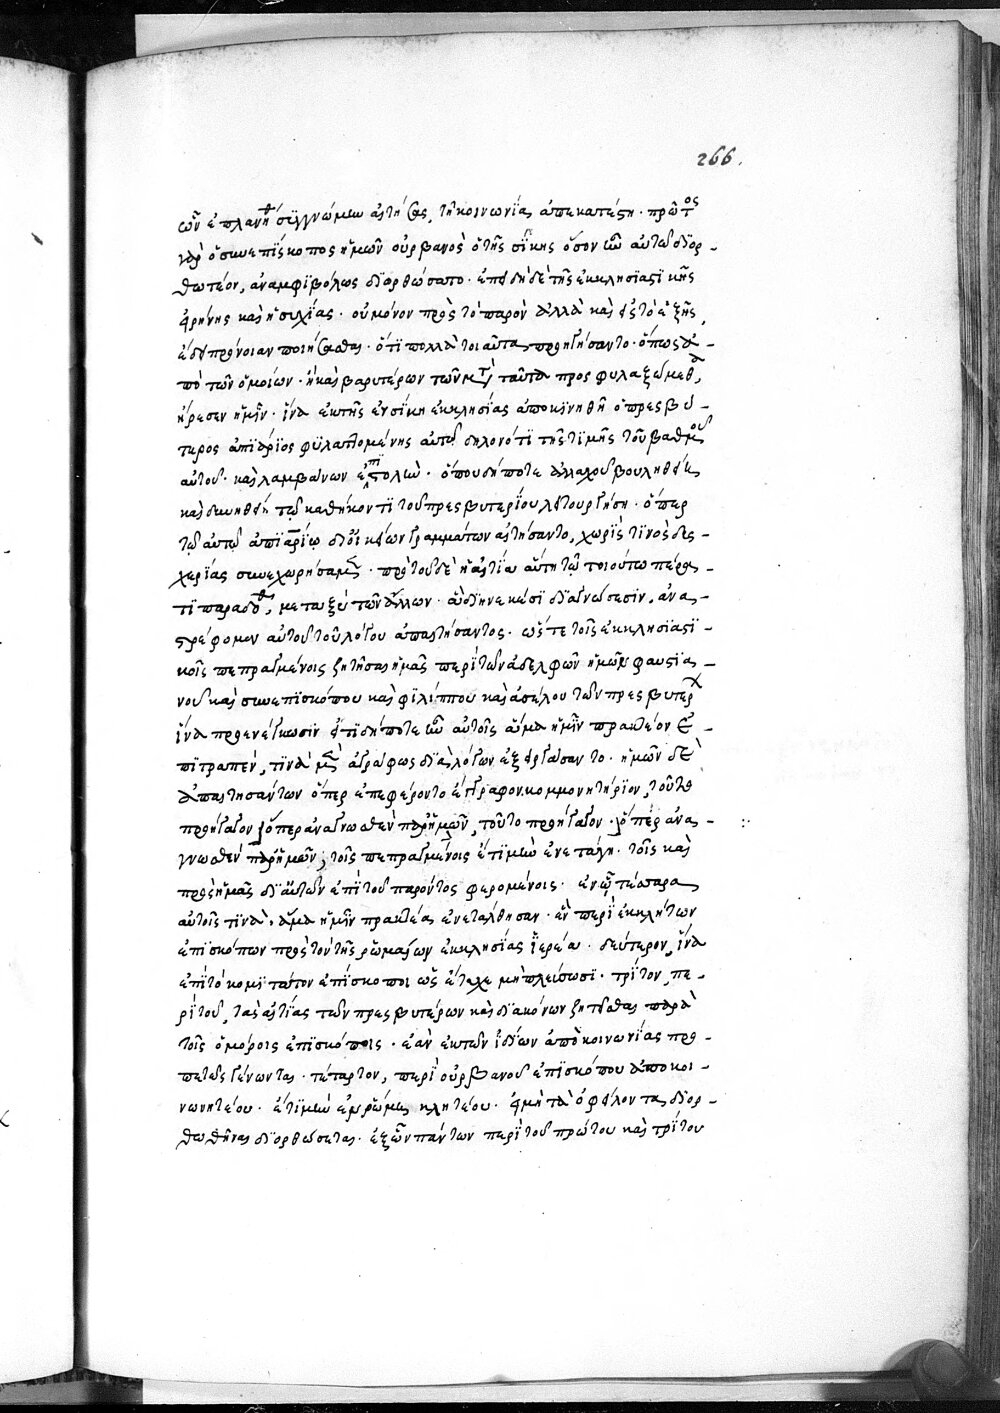 266.
ὧν ἐπλανήθη συγγνώμην αἰτήσας, τῇ κοινωνίᾳ ἀπεκατέστη · πρῶτος
γὰρ ὁ συνεπίσκοπος ἡμῶν οὐρβανὸς ὁ τῆς σίκκης ὅσον ἦν αὐτῷ διορ-
θωτέον, ἀναμφιβόλως διορθώσατο · ἐπειδὴ δὲ τῆς ἐκκλησιαστικῆς
εἰρήνης καὶ ἡσυχίας · οὐ μόνον πρὸς τὸ παρὸν ἀλλὰ καὶ εἰς τὸ ἑξῆς,
ἔδει πρόνοιαν ποιήσασθαι · ὅτι πολλὰ τοιαῦτα προηγήσαντο · ὅπως ἀ-
πὸ τῶν ὁμοίων · ἢ καὶ βαρυτέρων τῶν μετὰ ταῦτα προσφυλαξώμεθα,
ἤρεσεν ἡμῖν · ἵνα ἐκ τῆς ἐν σίκῃ ἐκκλησίας ἀποκινηθῇ ὁ πρεσβύ-
τερος ἀπιάριος φυλαττομένης αὐτῷ δηλονότι τῆς τιμῆς τοῦ βαθμοῦ
αὐτοῦ · καὶ λαμβάνων ἐπιστολὴν · ὅπου δήποτε ἀλλαχοῦ βουληθείη
καὶ δυνηθείη τῷ καθήκοντι τοῦ πρεσβυτερίου λειτουργήσῃ · ὅπερ
τῷ αὐτῷ ἀπιαρίῳ δι' οἰκείων γραμμάτων αἰτήσαντο, χωρὶς τινὸς δυς-
χερίας συνεχωρήσαμεν · πρὸ τοῦ δὲ ἡ αἰτία αὕτη τῷ τοιούτῳ πέρα-
τι παραδοθῇ, μεταξὺ τῶν ἄλλων · ἃ διηνεκέσι διαγνώσεσιν, ἀνα-
στρέφομεν αὐτοῦ τοῦ λόγου ἀπαιτήσαντος · ὥστε τοῖς ἐκκλησιαστι-
κοῖς πεπραγμένοις ζητῆσαι ἡμᾶς περὶ τῶν ἀδελφῶν ἡμῶν φαυστια-
νοῦ καὶ συνεπισκόπου καὶ φιλίππου καὶ ἀσέλου τῶν πρεσβυτέρων
ἵνα προενέγκωσιν εἴ τι δήποτε ἦν αὐτοῖς ἅμα ἡμῖν πρακτέον ἐ-
πιτραπὲν, τινὰ μὲν ἀγράφως διὰ λόγων ἐξειργάσαντο · ἡμῶν δὲ
ἀπαιτησάντων ὅπερ ἐπεφέροντο ἔγγραφον κομμονητήριον, τοῦτο
προήγαγον ὅπερ ἀναγνωσθὲν παρ' ἡμῶν, τοῦτο προήγαγον · ὅπερ ἀνα-
γνωσθὲν παρ' ἡμῶν, τοῖς πεπραγμένοις ἔτι μὴν ἐνετάγη · τοῖς καὶ
πρὸς ἡμᾶς δι' αὐτῶν ἐπὶ τοῦ παρόντος φερομένοις · ἐν ᾧ τέσσαρα
αὐτοῖς τινὰ, ἅμα ἡμῖν πρακτέα ἐνετάλθησαν · ἓν περὶ ἐκκλήτων
ἐπισκόπων πρὸς τὸν τῆς ῥωμαίων ἐκκλησίας ἱερέα · δεύτερον, ἵνα
ἐπὶ τὸ κομιτάτον ἐπίσκοποι ὡς ἔτυχε μὴ πλείωσι · τρίτον, πε-
ρὶ τοῦ, τὰς αἰτίας τῶν πρεσβυτέρων καὶ διακόνων ζητεῖσθαι παρὰ
τοῖς ὁμόροις ἐπισκόποις · ἐὰν ἐκ τῶν ἰδίων ἀπὸ κοινωνίας προ-
πετῶς γένωνται · τέταρτον, περὶ οὐρβανοῦ ἐπισκόπου ἀποκοι-
νωνητέου · ἔτι μὴν ἐν ῥώμῃ κλητέου · εἰ μὴ τὰ ὀφείλοντα διορ-
θωθῆναι διορθώσεται · ἐξ ὧν πάντων περὶ τοῦ πρώτου καὶ τρίτου